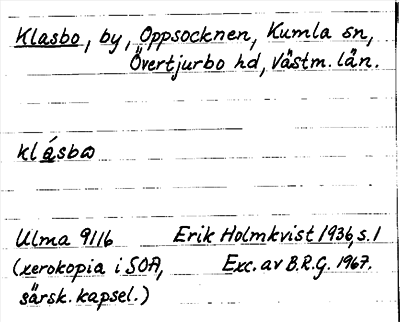 Klasbo, by, Oppsocknen, Kumla sn,
Övertjurbo hd, Västm. län.
klásbω
Ulma 9116 Erik Holmkvist 1936, s. 1
(xerokopia i SOA, Exc. av B.R.G. 1967.
särsk. kapsel.)